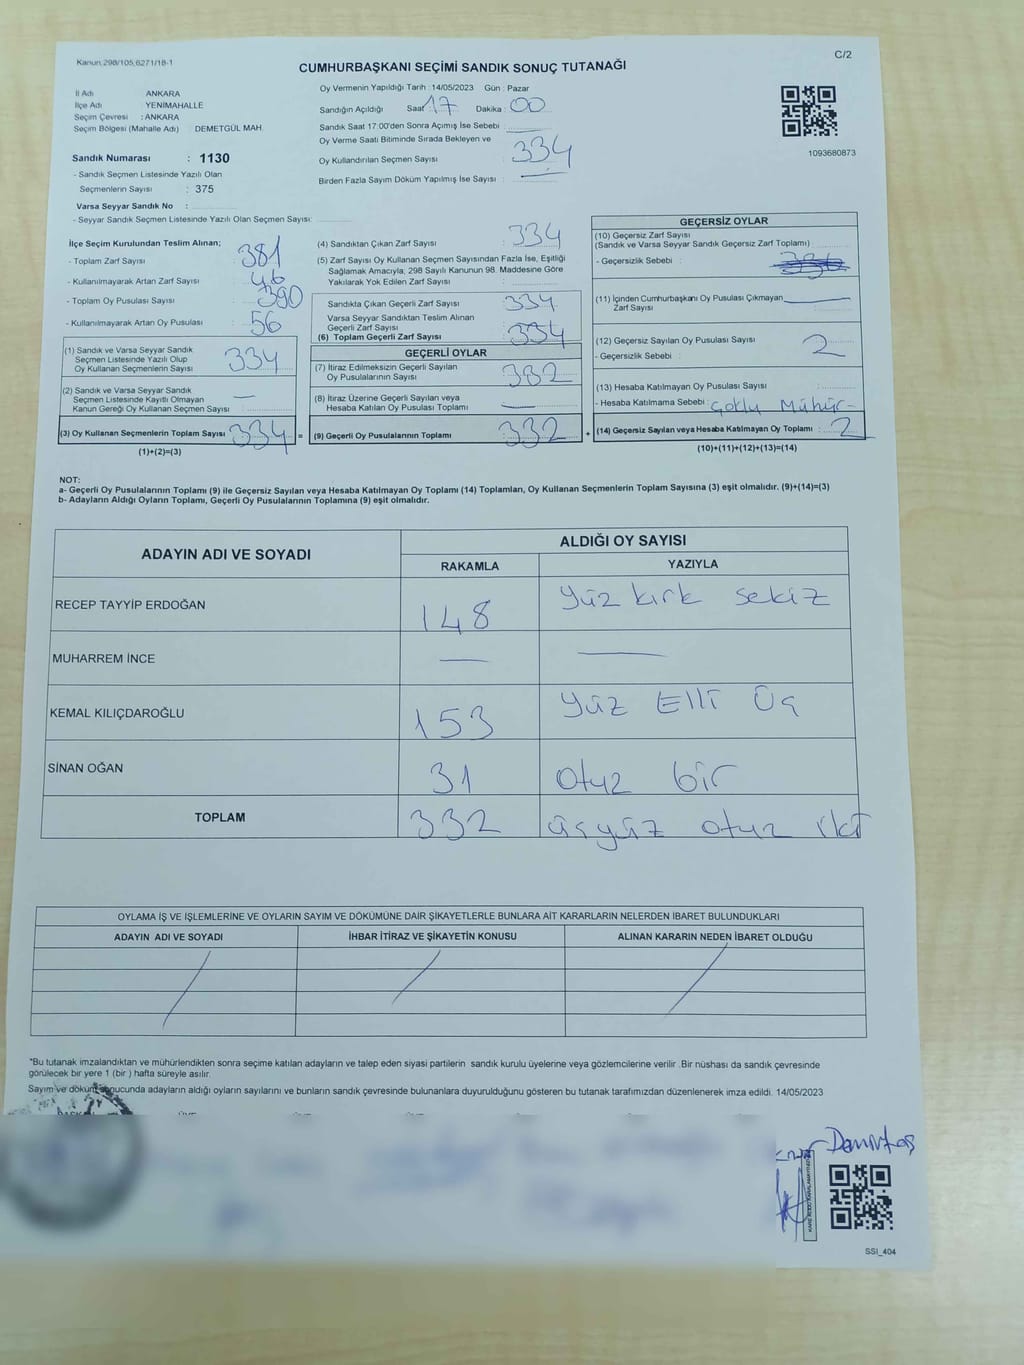 Kanun,298/105,6271/18-1
C/2
CUMHURBAŞKANI SEÇİMİ SANDIK SONUÇ TUTANAĞI
İl Adı ANKARA
İlçe Adı YENİMAHALLE
Seçim Çevresi : ANKARA
Seçim Bölgesi (Mahalle Adı) : DEMETGÜL MAH.
Sandık Numarası : 1130
- Sandık Seçmen Listesinde Yazılı Olan
Seçmenlerin Sayısı : 375
Varsa Seyyar Sandık No :
- Seyyar Sandık Seçmen Listesinde Yazılı Olan Seçmen Sayısı:
Oy Vermenin Yapıldığı Tarih : 14/05/2023 Gün : Pazar
Sandığın Açıldığı Saat : 17 Dakika : 00
Sandık Saat 17:00'den Sonra Açımış İse Sebebi
Oy Verme Saati Bitiminde Sırada Bekleyen ve
Oy Kullandırılan Seçmen Sayısı : 334
Birden Fazla Sayım Döküm Yapılmış İse Sayısı :
1093680873
İlçe Seçim Kurulundan Teslim Alınan;
- Toplam Zarf Sayısı : 381
- Kullanılmayarak Artan Zarf Sayısı : 46
- Toplam Oy Pusulası Sayısı : 390
- Kullanılmayarak Artan Oy Pusulası : 56
(1) Sandık ve Varsa Seyyar Sandık
Seçmen Listesinde Yazılı Olup
Oy Kullanan Seçmenlerin Sayısı : 334
(2) Sandık ve Varsa Seyyar Sandık
Seçmen Listesinde Kayıtlı Olmayan
Kanun Gereği Oy Kullanan Seçmen Sayısı : —
(3) Oy Kullanan Seçmenlerin Toplam Sayısı : 334 =
(1)+(2)=(3)
(4) Sandıktan Çıkan Zarf Sayısı : 334
(5) Zarf Sayısı Oy Kullanan Seçmen Sayısından Fazla İse, Eşitliği
Sağlamak Amacıyla, 298 Sayılı Kanunun 98. Maddesine Göre
Yakılarak Yok Edilen Zarf Sayısı :
Sandıkta Çıkan Geçerli Zarf Sayısı : 334
Varsa Seyyar Sandıktan Teslim Alınan
Geçerli Zarf Sayısı
(6) Toplam Geçerli Zarf Sayısı : 334
GEÇERLİ OYLAR
(7) İtiraz Edilmeksizin Geçerli Sayılan
Oy Pusulalarının Sayısı : 332
(8) İtiraz Üzerine Geçerli Sayılan veya
Hesaba Katılan Oy Pusulası Toplamı : —
(9) Geçerli Oy Pusulalarının Toplamı : 332 +
GEÇERSİZ OYLAR
(10) Geçersiz Zarf Sayısı
(Sandık ve Varsa Seyyar Sandık Geçersiz Zarf Toplamı) :
- Geçersizlik Sebebi :
(11) İçinden Cumhurbaşkanı Oy Pusulası Çıkmayan
Zarf Sayısı : —
(12) Geçersiz Sayılan Oy Pusulası Sayısı : 2
- Geçersizlik Sebebi :
(13) Hesaba Katılmayan Oy Pusulası Sayısı :
- Hesaba Katılmama Sebebi : Çoklu Mühür-
(14) Geçersiz Sayılan veya Hesaba Katılmayan Oy Toplamı : 2
(10)+(11)+(12)+(13)=(14)
NOT:
a- Geçerli Oy Pusulalarının Toplamı (9) ile Geçersiz Sayılan veya Hesaba Katılmayan Oy Toplamı (14) Toplamları, Oy Kullanan Seçmenlerin Toplam Sayısına (3) eşit olmalıdır. (9)+(14)=(3)
b- Adayların Aldığı Oyların Toplamı, Geçerli Oy Pusulalarının Toplamına (9) eşit olmalıdır.
ADAYIN ADI VE SOYADI ALDIĞI OY SAYISI
RAKAMLA YAZIYLA
RECEP TAYYİP ERDOĞAN 148 Yüz kırk sekiz
MUHARREM İNCE — —
KEMAL KILIÇDAROĞLU 153 Yüz Elli Üç
SİNAN OĞAN 31 otuz bir
TOPLAM 332 üçyüz otuz iki
OYLAMA İŞ VE İŞLEMLERİNE VE OYLARIN SAYIM VE DÖKÜMÜNE DAİR ŞİKAYETLERLE BUNLARA AİT KARARLARIN NELERDEN İBARET BULUNDUKLARI
ADAYIN ADI VE SOYADI İHBAR İTİRAZ VE ŞİKAYETİN KONUSU ALINAN KARARIN NEDEN İBARET OLDUĞU
*Bu tutanak imzalandıktan ve mühürlendikten sonra seçime katılan adayların ve talep eden siyasi partilerin sandık kurulu üyelerine veya gözlemcilerine verilir .Bir nüshası da sandık çevresinde
görülecek bir yere 1 (bir ) hafta süreyle asılır.
Sayım ve döküm sonucunda adayların aldığı oyların sayılarını ve bunların sandık çevresinde bulunanlara duyurulduğunu gösteren bu tutanak tarafımızdan düzenlenerek imza edildi. 14/05/2023
Demirtaş
SSI_404